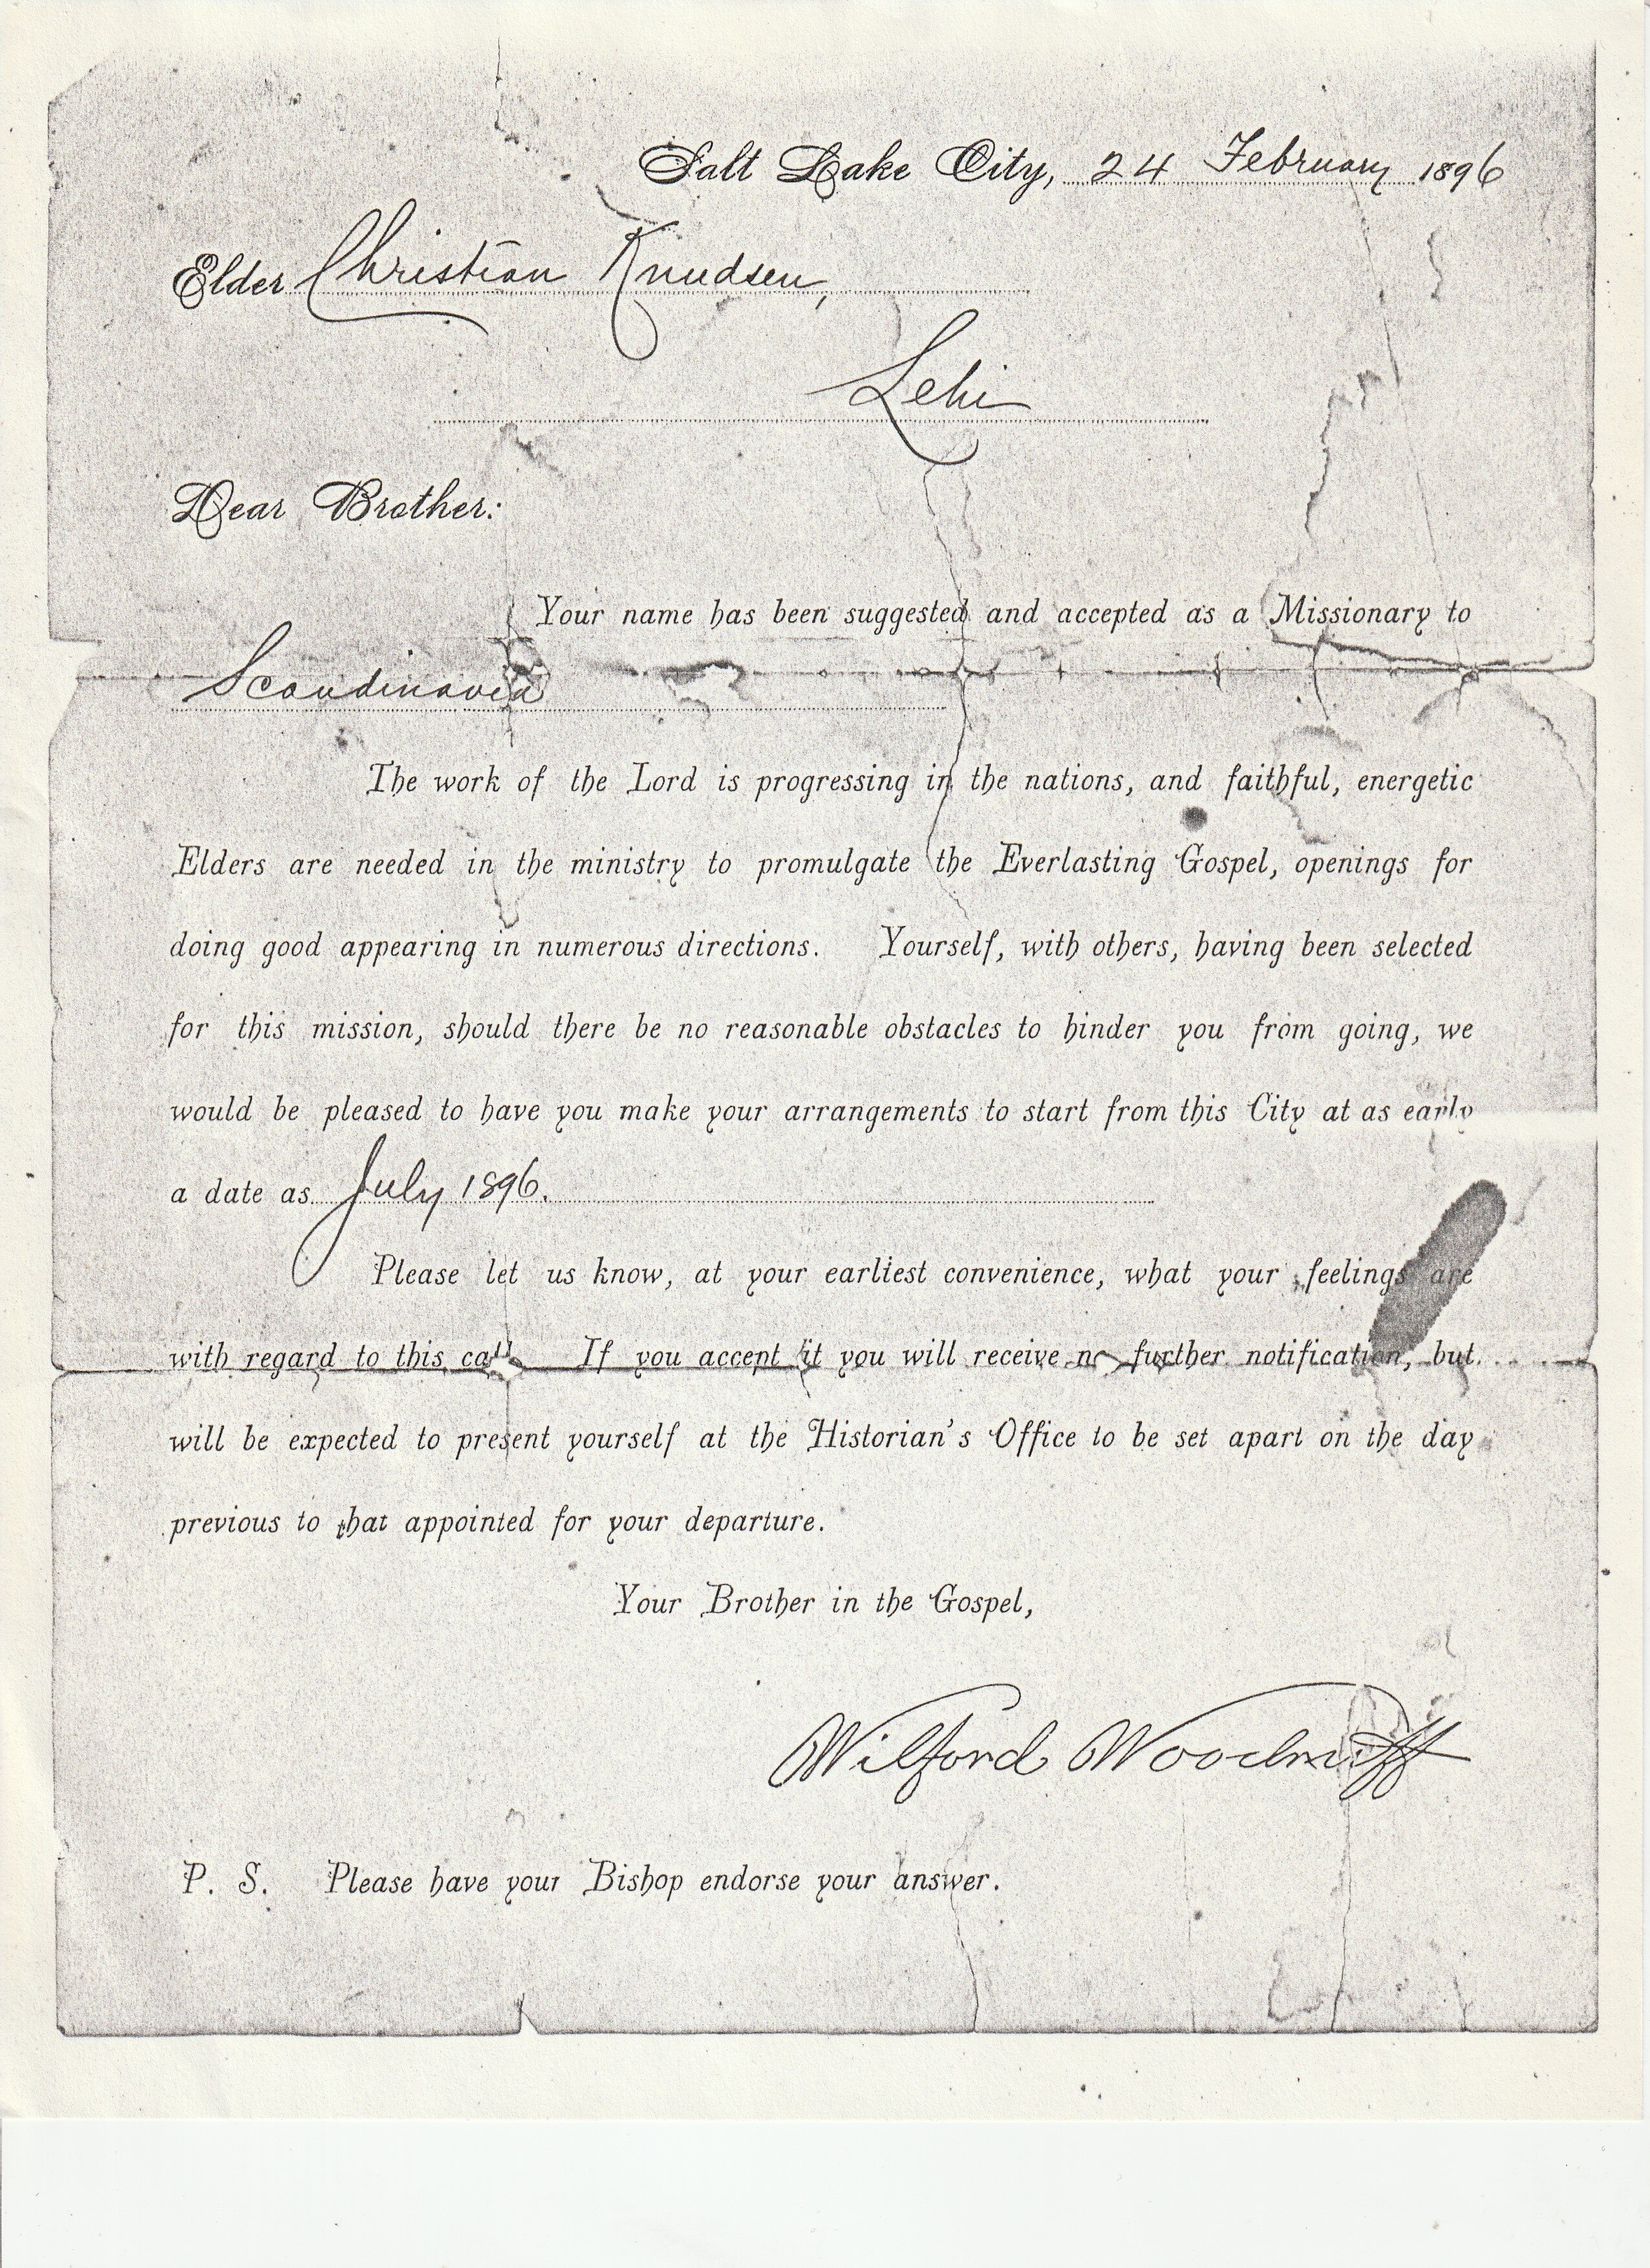 Salt Lake City, 24 February 1896
Elder Christian Knudsen,
Lehi
Dear Brother:
Your name has been suggested and accepted as a Missionary to
Scandinavia
The work of the Lord is progressing in the nations, and faithful, energetic
Elders are needed in the ministry to promulgate the Everlasting Gospel, openings for
doing good appearing in numerous directions. Yourself, with others, having been selected
for this mission, should there be no reasonable obstacles to hinder you from going, we
would be pleased to have you make your arrangements to start from this City at as early
a date as July 1896.
Please let us know, at your earliest convenience, what your feelings are
with regard to this call. If you accept it you will receive no further notification, but
will be expected to present yourself at the Historian's Office to be set apart on the day
previous to that appointed for your departure.
Your Brother in the Gospel,
Wilford Woodruff
P. S. Please have your Bishop endorse your answer.